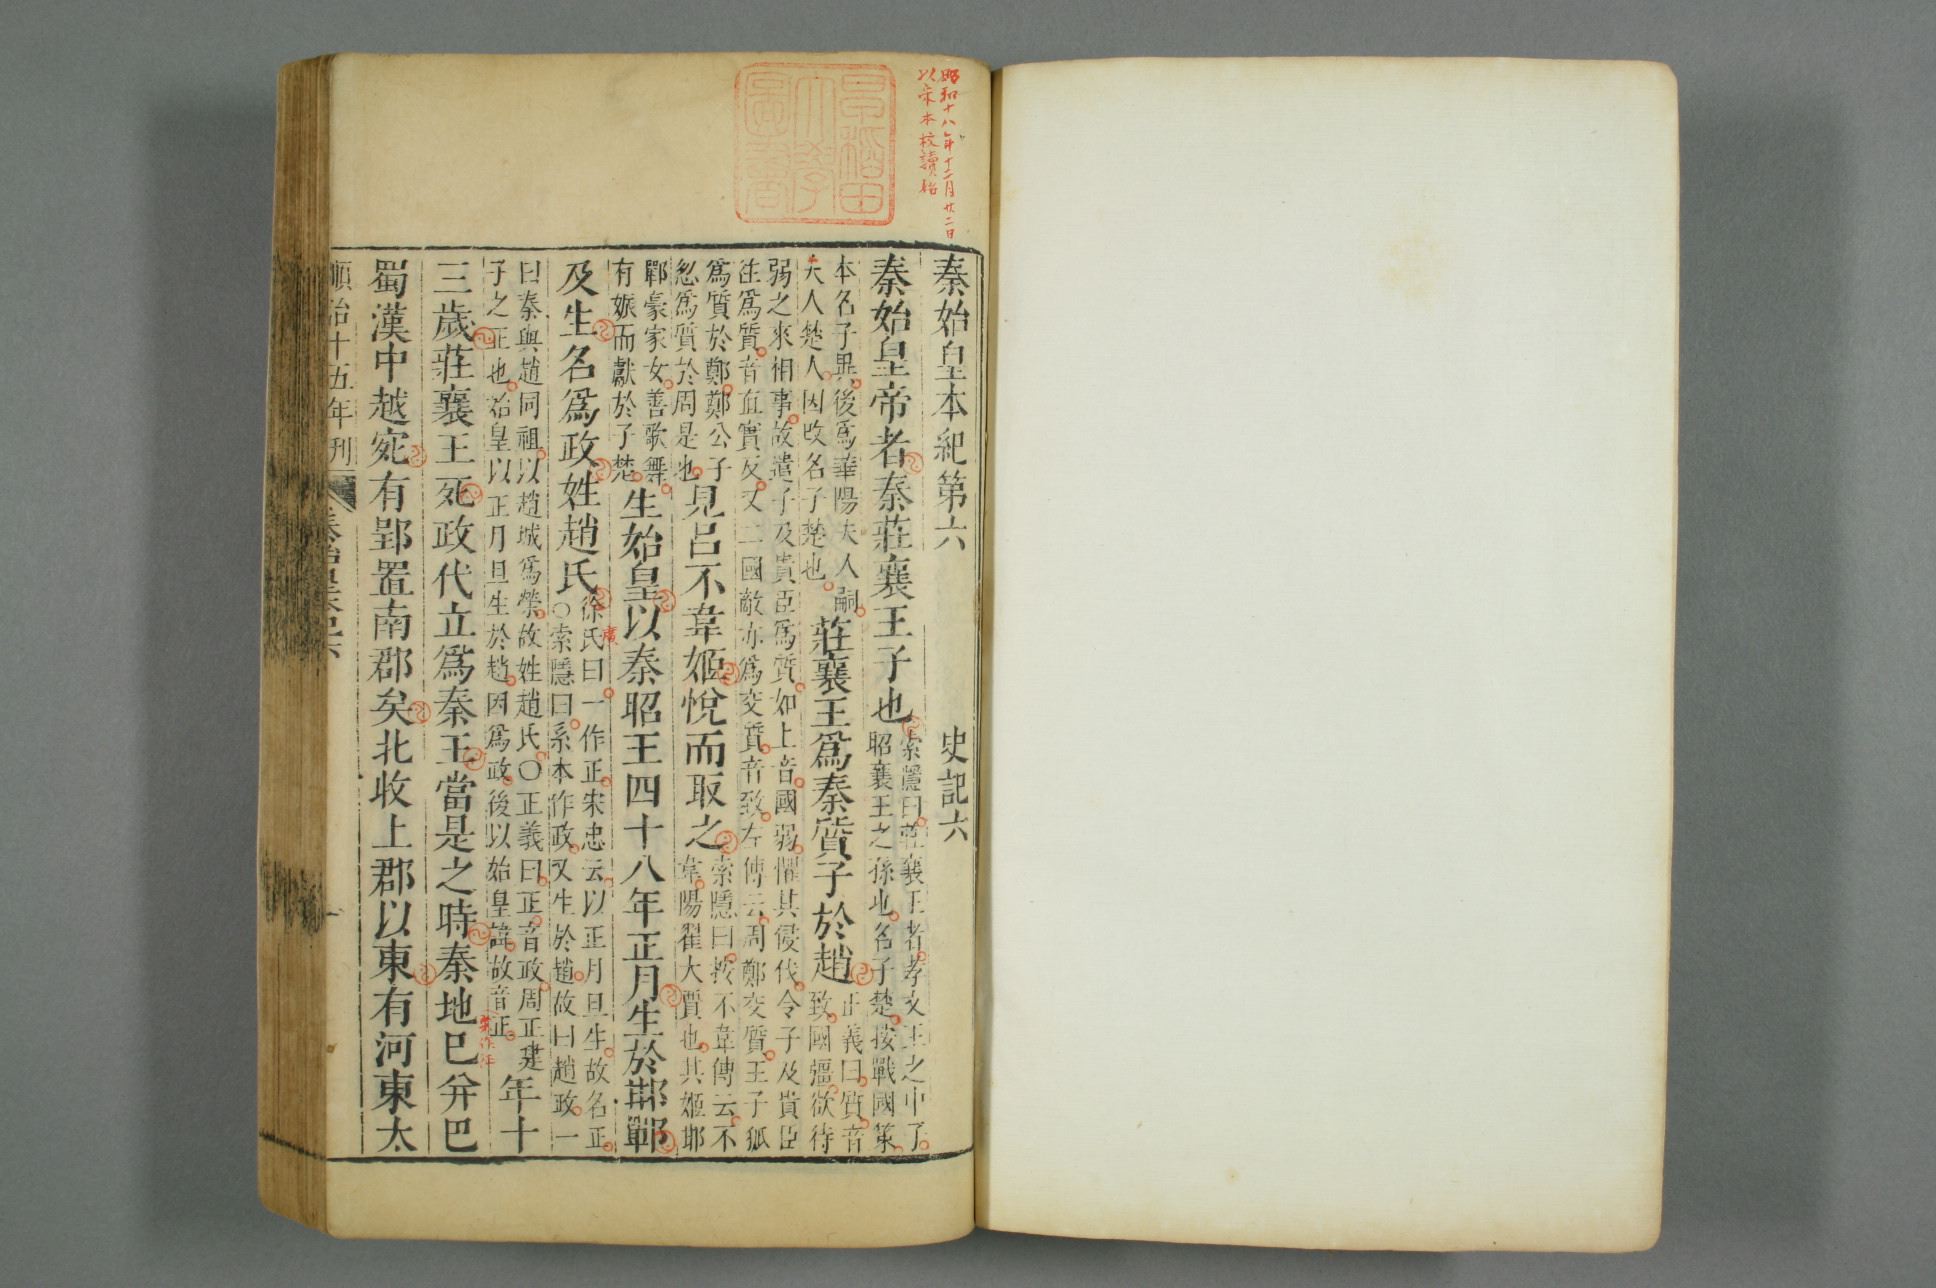 昭和十八年十二月廿二日
以宋本校讀始
早稲田
大學
圖書
秦始皇本紀第六 史記六
秦始皇帝者秦莊襄王子也
索隱曰莊襄王者孝文王之中子
昭襄王之孫也名子楚按戰國策
本名子異後爲華陽夫人嗣
夫人楚人因改名子楚也
莊襄王爲秦質子於趙
正義曰質音
致國彊欲待
弱之來相事故遣子及貴臣爲質如上音國弱懼其侵伐令子及貴臣
往爲質音直實反又二國敵亦爲交質音致左傳云周鄭交質王子狐
爲質於鄭鄭公子
忽爲質於周是也
見呂不韋姬悅而取之
索隱曰按不韋傳云不
韋陽翟大賈也其姬邯
鄲豪家女善歌舞
有娠而獻於子楚
生始皇以秦昭王四十八年正月生於邯鄲
及生名爲政姓趙氏
徐廣曰一作正宋忠云以正月旦生故名正
○索隱曰系本作政又生於趙故曰趙政一
曰秦與趙同祖以趙城爲榮故姓趙氏○正義曰正音政周正建
子之正也始皇以正月旦生於趙因爲政後以始皇諱故音正
年十
三歲莊襄王死政代立爲秦王當是之時秦地已幷巴
蜀漢中越宛有郢置南郡矣北收上郡以東有河東太
順治十五年刊 秦始皇本紀六 一